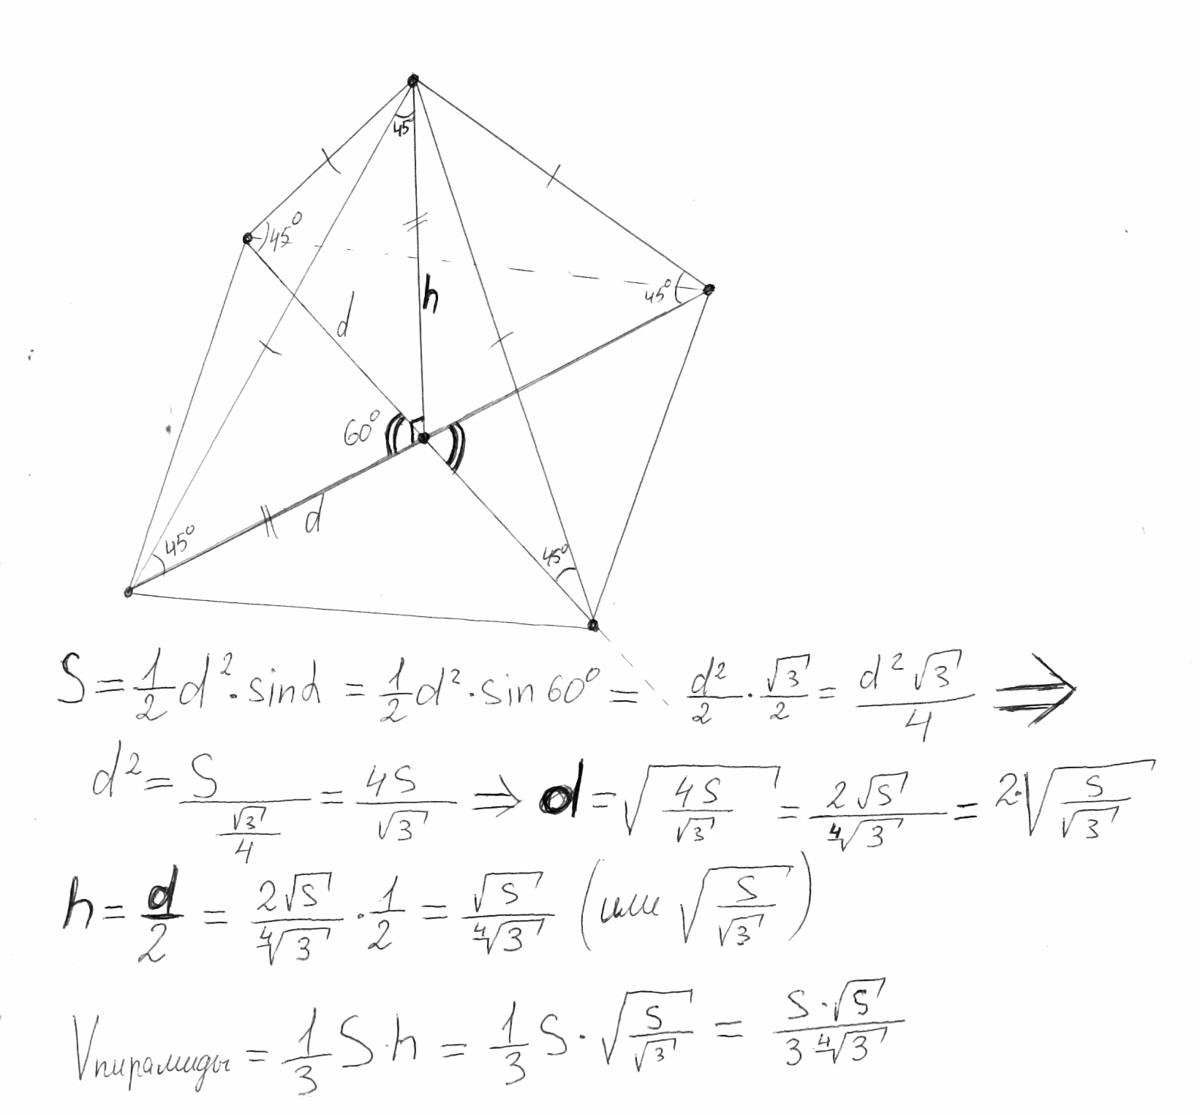 45
45°
h
45°
d
60°
d
45°
45°
S = 1/2 d² · sin α = 1/2 d² · sin 60° = d²/2 · √3/2 = d²√3/4 ⇒
d² = S/(√3/4) = 4S/√3 ⇒ d = √(4S/√3) = 2√S/∜3 = 2·√(S/√3)
h = d/2 = 2√S/∜3 · 1/2 = √S/∜3 (или √(S/√3))
Vпирамиды = 1/3 S·h = 1/3 S · √(S/√3) = S·√S/(3∜3)